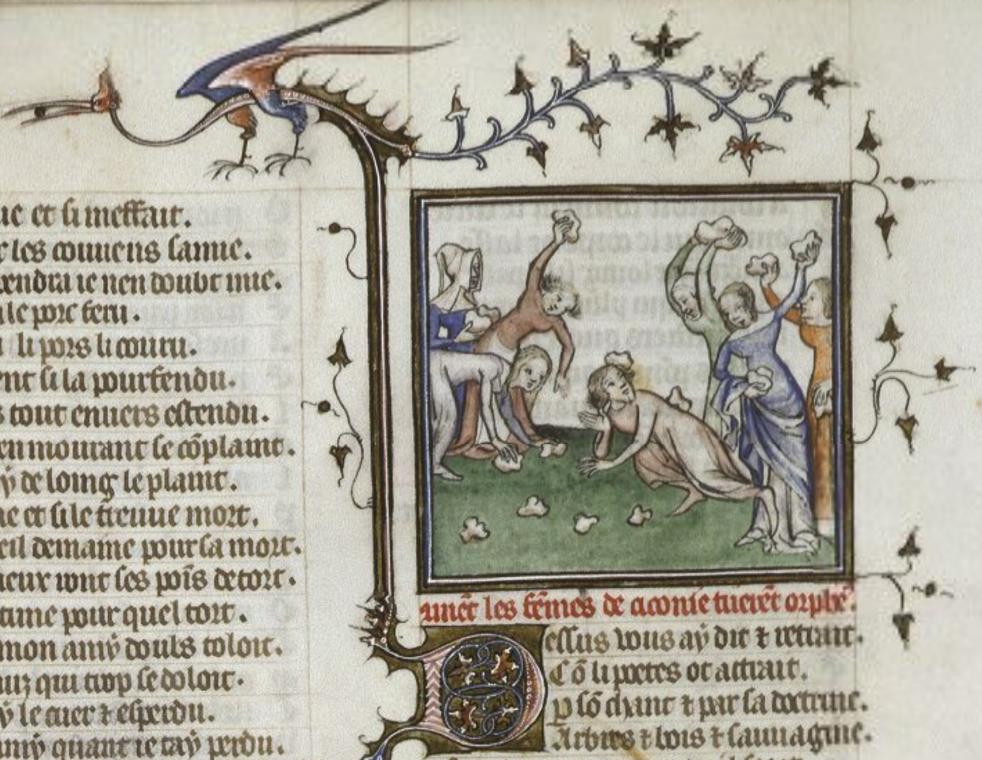 ue et si meffait.
r les couuens sanne.
tendra ie nen doubt mie.
le porc feru.
li pors li couru.
ent si la pourfendu.
s tout enuers estendu.
en mourant se cõplaint.
ÿ de loing le plaint.
ne et si le treuue mort.
eil demaine pour sa mort.
ieux ront ses poĩs detort.
tune pour quel tort.
mon amÿ douls toloit.
qui trop se doloit.
ÿ le cuer ⁊ esperdu.
amÿ quant ie taÿ perdu.
les fẽmes de ciconie tuerẽt orphe.
Dessus vous aÿ dit ⁊ retrait.
Cõ li poetes ot attrait.
p sõ chant ⁊ par sa doctrine.
Arbres ⁊ bois ⁊ sauuagine.